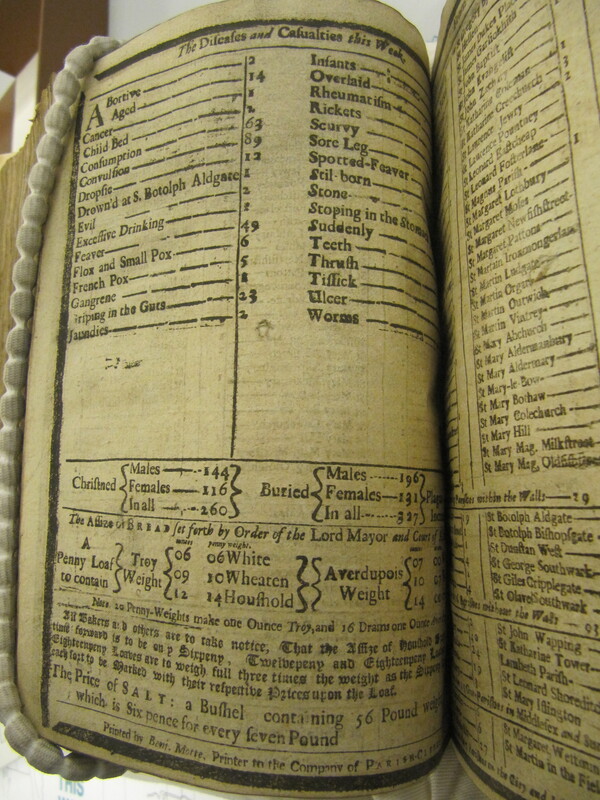 The Diseases and Casualties this Week.
Abortive
Aged
Cancer
Child Bed
Consumption
Convulsion
Dropsie
Drown'd at S. Botolph Aldgate
Evil
Excessive Drinking
Feaver
Flox and Small Pox
French Pox
Gangrene
Griping in the Guts
Jaundies
2
14
1
2
63
89
12
1
2
1
49
6
5
1
23
2
Infants
Overlaid
Rheumatism
Rickets
Scurvy
Sore Leg
Spotted-Feaver
Stil-born
Stone
Stoping in the Stom
Suddenly
Teeth
Thrush
Tissick
Ulcer
Worms
Christned { Males 144 Females 116 In all 260 }
Buried { Males 196 Females 131 In all 327 } Plag
The Assize of BREAD set forth by Order of the Lord Mayor and Court of
A Penny Loaf to contain { Troy Weight { ounces penny weight.
06 06 White
09 10 Wheaten
12 14 Houshold } Averdupois Weight { 07
10
14
Note, 20 Penny-Weights make one Ounce Troy, and 16 Drams one Ounce
All Bakers and others are to take notice, That the Assize of Houshold
time forward is to be on y Sixpeny, Twelvepeny and Eighteenpeny
Eighteenpeny Loaves are to weigh full three times the weight as the Sixpeny
each sort to be Marked with their respective Prices upon the Loaf.
The Price of SALT: a Bushel containing 56 Pound weig
which is Six pence for every seven Pound
Printed by Benj. Motte, Printer to the Company of PARISH-C
St James Garlickhith
St John Baptist
St John Zachary
St Katharine Coleman
St Katharine Creechurch
St Lawrence Jewry
St Lawrence Pountney
St Leonard Eastcheap
St Leonard Fosterlane
St Magnus Parish
St Margaret Lothbury
St Margaret Moses
St Margaret Newfishstreet
St Margaret Pattons
St Martin Ironmongerlan
St Martin Ludgate
St Martin Orgars
St Martin Outwich
St Martin Vintrey
St Mary Abchurch
St Mary Aldermanbury
St Mary Aldermary
St Mary-le-Bow
St Mary Bothaw
St Mary Colechurch
St Mary Hill
St Mary Mag. Milkstreet
St Mary Mag. Oldfishstreet
Parishes within the Walls 29
St Botolph Aldgate
St Botolph Bishopsgate
St Dunstan West
St George Southwark
St Giles Cripplegate
St Olave Southwark
Parishes without the Walls
St John Wapping
St Katharine Tower
Lambeth Parish
St Leonard Shoredit
St Mary Islington
Parishes in Middlesex and
St Margaret Westmin
St Martin in the Field
in the City and
THIS